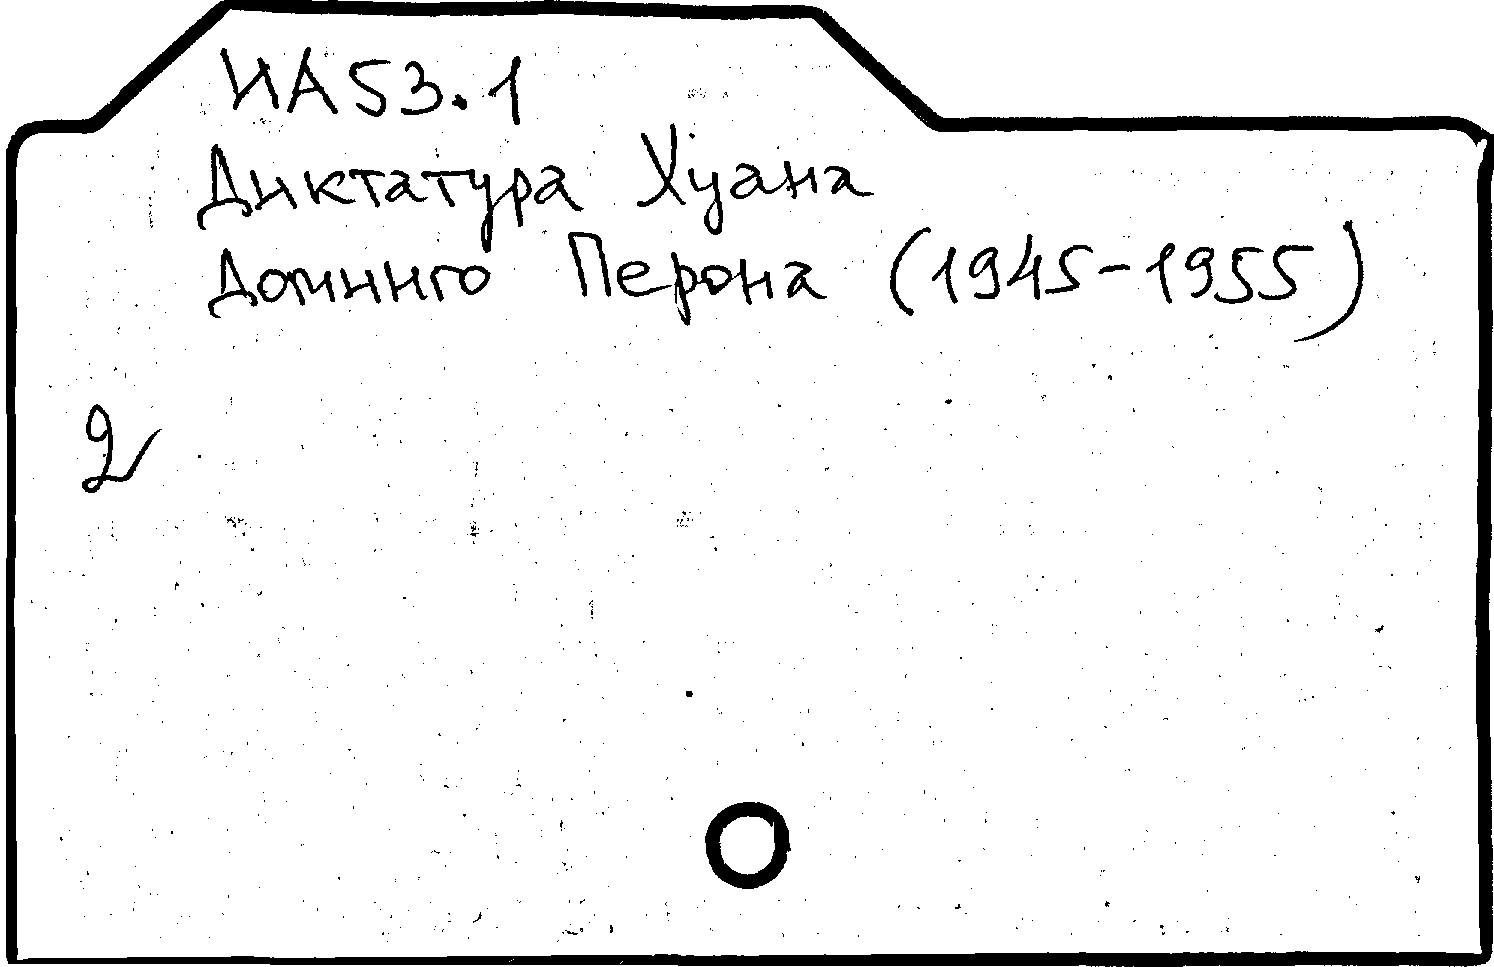 ИА53.1
Диктатура Хуана
Доминго Перона (1945-1955)
2